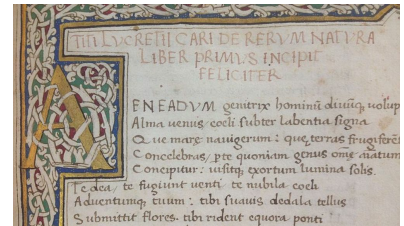 TITI LVCRETII CARI DE RERVM NATVRA
LIBER PRIMVS INCIPIT
FELICITER
AENEADVM genitrix hominū diuūq; volup
Alma venus: coeli subter labentia signa
Que mare nauigerum: que terras frugiferēt
Concelebras, pte quoniam genus omē aīatum
Concipitur: uisitq; exortum lumina solis.
Te dea, te fugiunt venti te nubila coeli
Aduentumq; tuum: tibi suauis dedala tellus
Submittit flores. tibi rident equora ponti